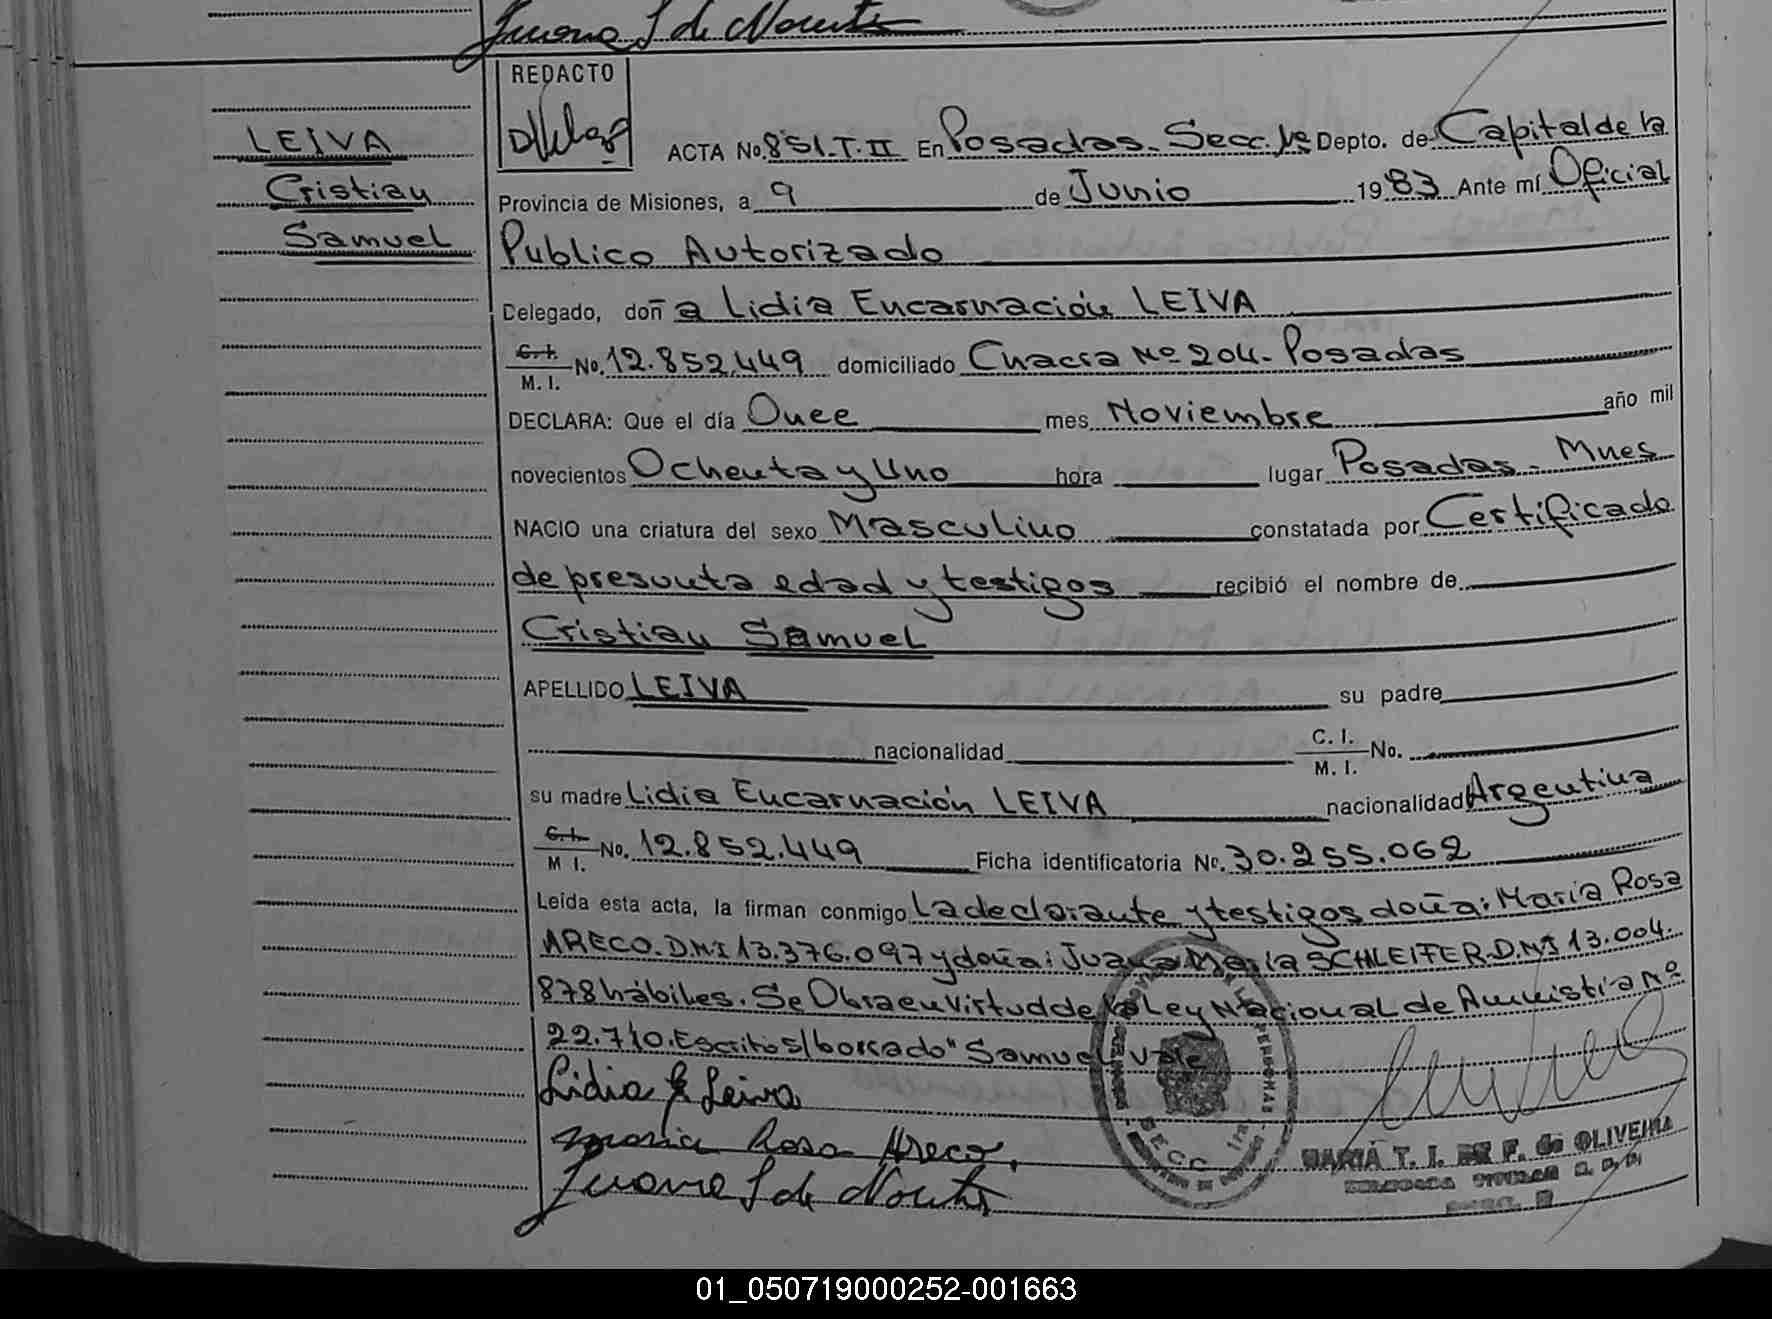 Juana S de Nouts
REDACTO
LEIVA
Cristian
Samuel
ACTA No. 851.T.II En Posadas. Secc. 1ª Depto. de Capital de la
Provincia de Misiones, a 9 de Junio 1983 Ante mí Oficial
Publico Autorizado
Delegado, doñ a Lidia Encarnación LEIVA
C. I.
M. I. No. 12.852.449 domiciliado Chacra Nº 204 - Posadas
DECLARA: Que el día Once mes Noviembre año mil
novecientos Ochenta y Uno hora lugar Posadas - Mnes
NACIO una criatura del sexo Masculino constatada por Certificado
de presunta edad y testigos recibió el nombre de
Cristian Samuel
APELLIDO LEIVA su padre
nacionalidad C. I.
M. I. No.
su madre Lidia Encarnación LEIVA nacionalidad Argentina
C. I.
M I. No. 12.852.449 Ficha identificatoria No. 30.255.062
Leída esta acta, la firman conmigo La declarante y testigos doña: María Rosa
ARECO. D.N.I 13.376.097 y doña: Juana María SCHLEIFER. D.N.I 13.004.
878 hábiles. Se Obra en virtud de la Ley Nacional de Amnistia Nº
22.710. Escrito s/borrado "Samuel" Vale
Lidia E Leiva
Maria Rosa Areco.
Juana S de Nouts
MARIA T. I. DE F. de OLIVEIRA
DELEGADA TITULAR R. P. P.
01_050719000252-001663